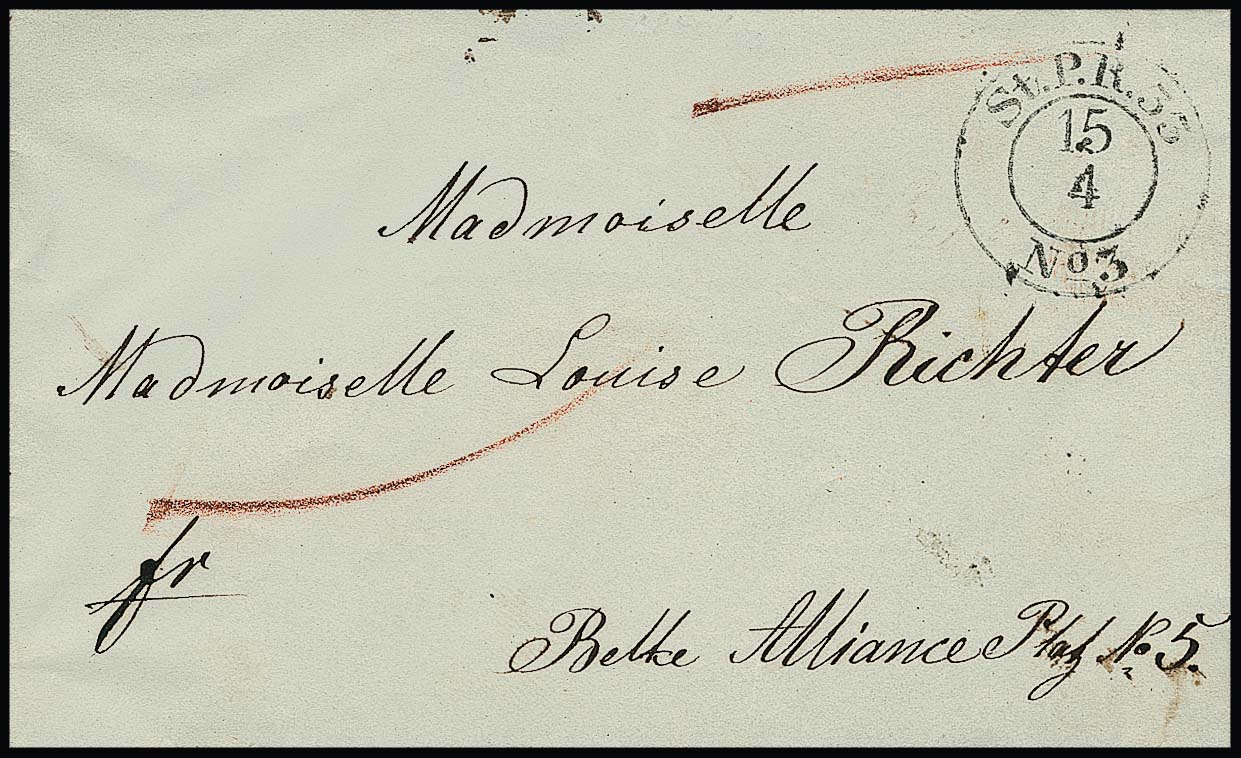 St. P. R. 35
15
4
No 3
Madmoiselle
Madmoiselle Louise Richter
fr
Belle Alliance Platz No 5.